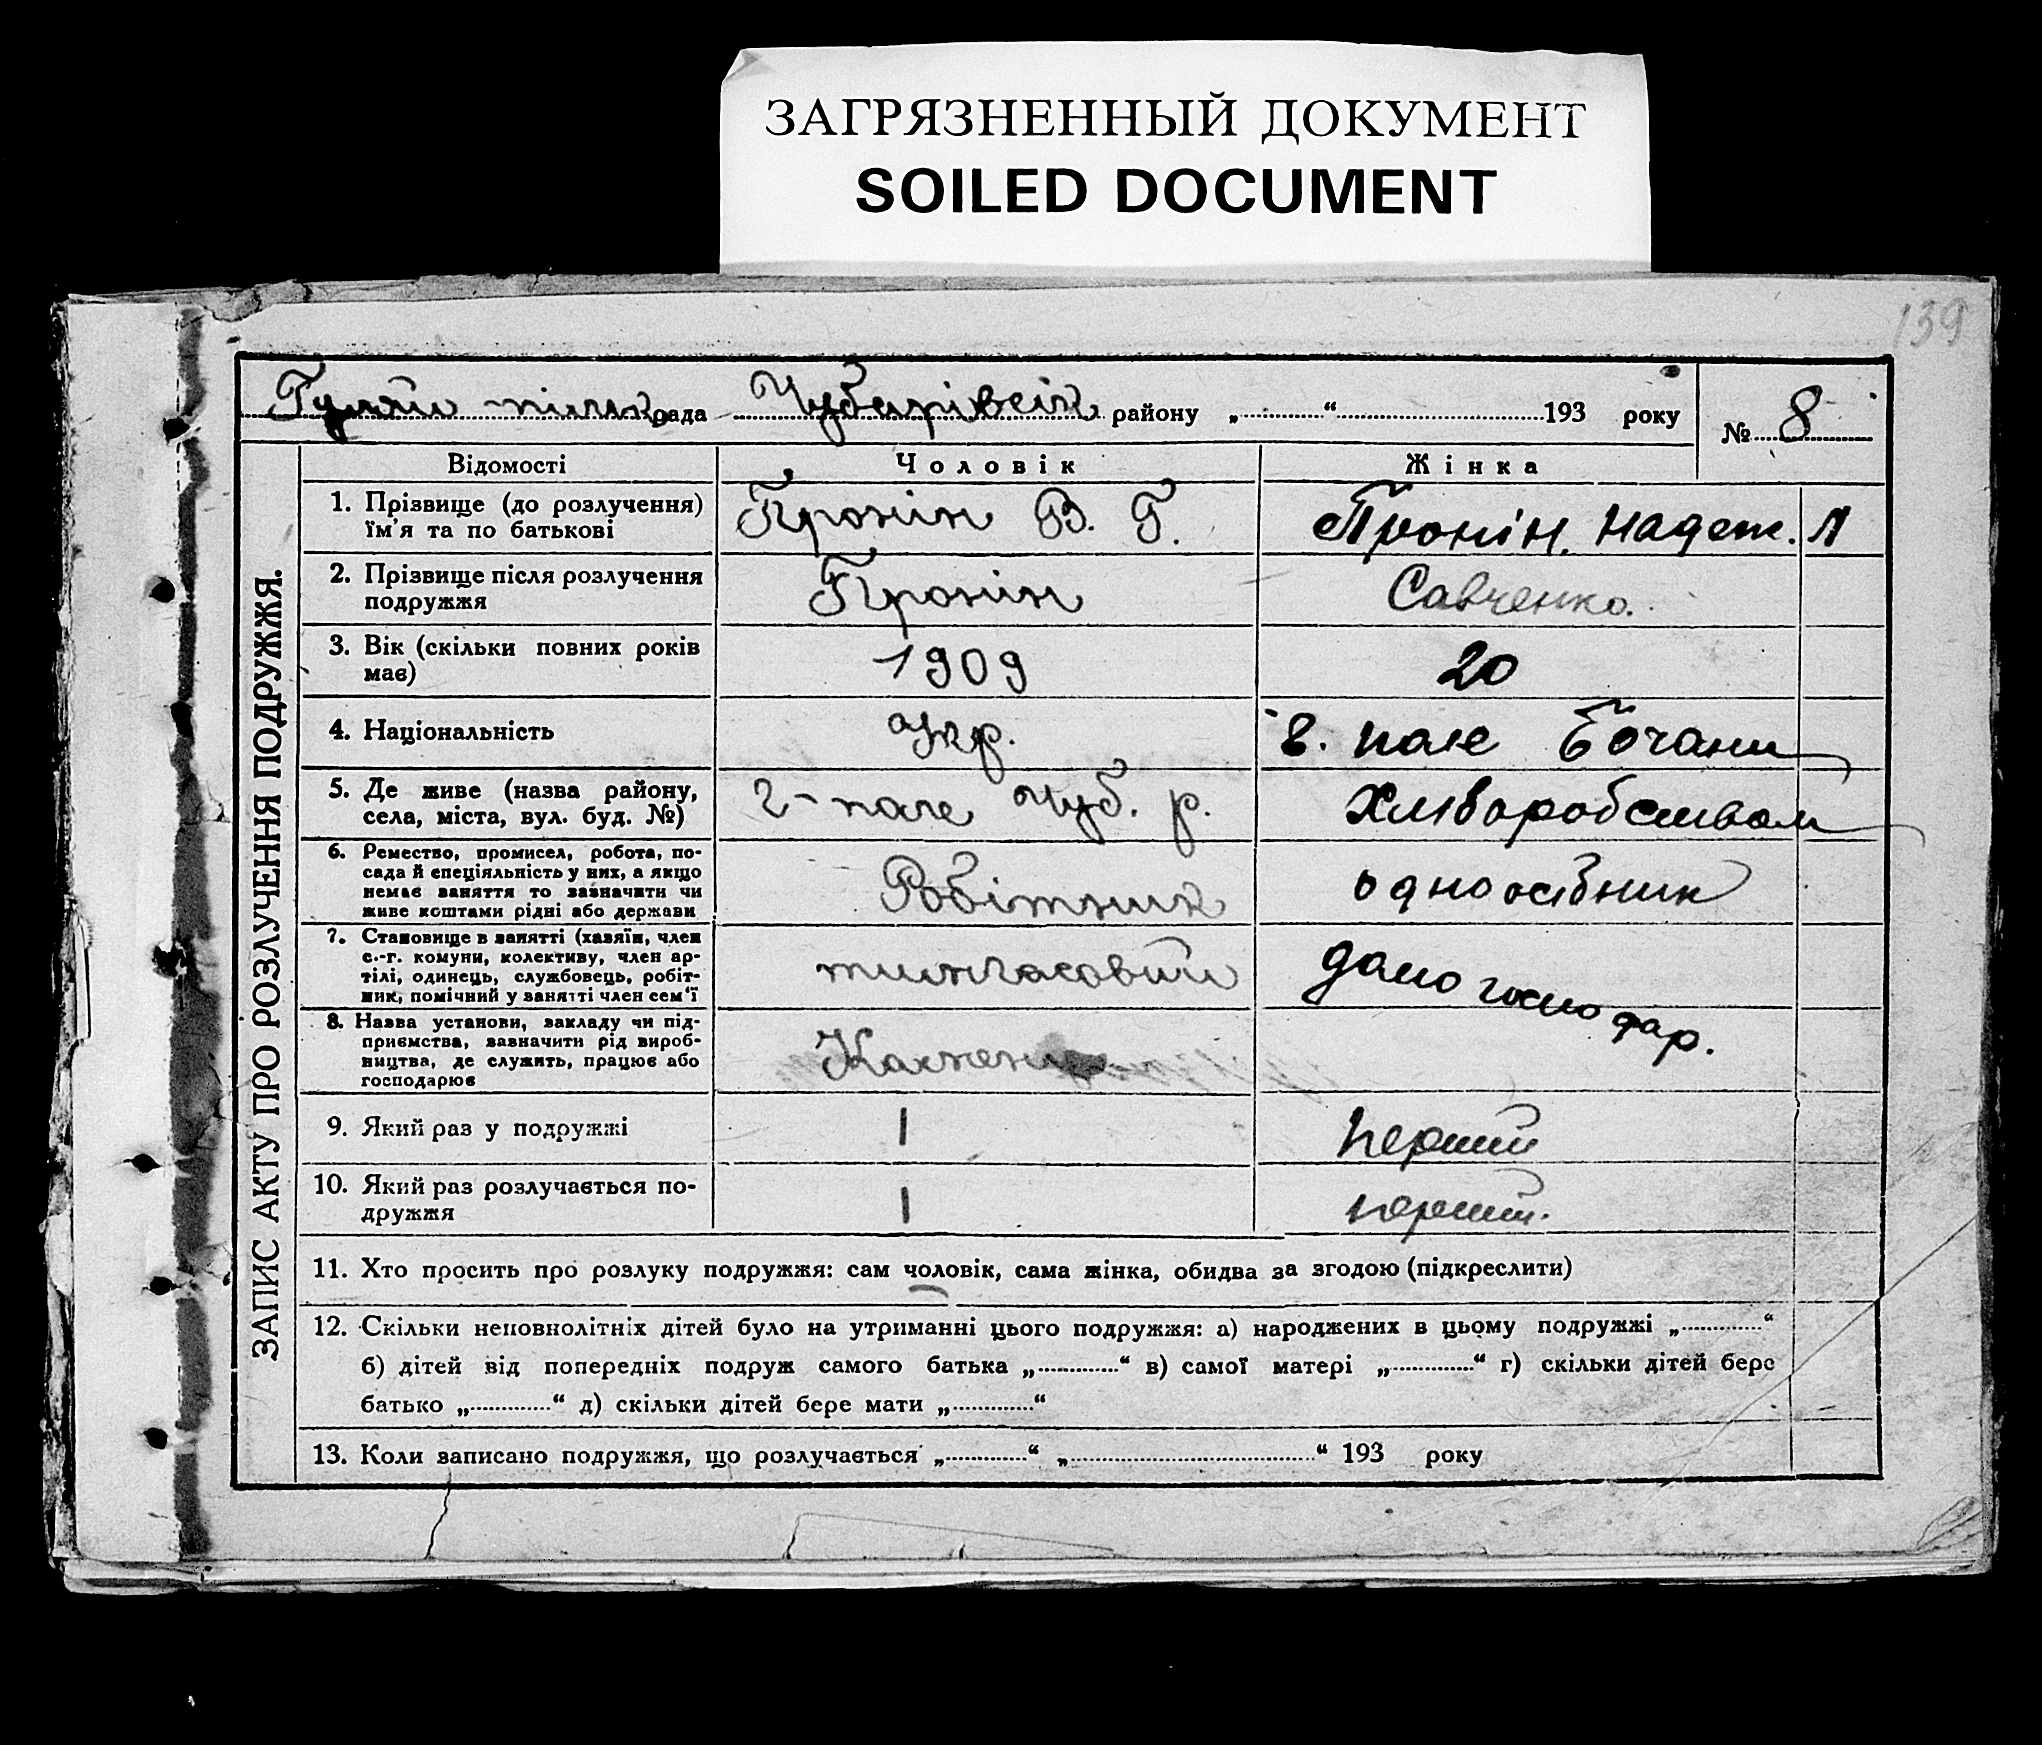 ЗАГРЯЗНЕННЫЙ ДОКУМЕНТ
SOILED DOCUMENT
139
рада Чубарівськ району „ “ 193 року
№ 8
ЗАПИС АКТУ ПРО РОЗЛУЧЕННЯ ПОДРУЖЖЯ.
Відомості Чоловік Жінка
1. Прізвище (до розлучення)
їм'я та по батькові
Пронін В. Г. Пронін. Надеж. Л
2. Прізвище після розлучення
подружжя
Пронін Савченко.
3. Вік (скільки повних років
має)
1909 20
4. Національність
Укр. Г. поле Бочани
5. Де живе (назва району,
села, міста, вул. буд. №)
Г-поле Чуб. р. Хліборобством
6. Ремество, промисел, робота, по-
сада й спеціяльність у них, а якщо
немає заняття то зазначити чи
живе коштами рідні або держави
Робітник одноосібник
7. Становище в занятті (хазяїн, член
с.-г. комуни, колективу, член ар-
тілі, одинець, службовець, робіт-
ник, помічний у занятті член сем'ї
тимчасовий дамогосподар.
8. Назва установи, закладу чи під-
приємства, зазначити рід вироб-
ництва, де служить, працює або
господарює
9. Який раз у подружжі
1 перший
10. Який раз розлучається по-
дружжя
1 перший.
11. Хто просить про розлуку подружжя: сам чоловік, сама жінка, обидва за згодою (підкреслити)
12. Скільки неповнолітніх дітей було на утриманні цього подружжя: а) народжених в цьому подружжі „ “
б) дітей від попередніх подруж самого батька „ “ в) самої матері „ “ г) скільки дітей бере
батько „ “ д) скільки дітей бере мати „ “
13. Коли записано подружжя, що розлучається „ “ „ “ 193 року